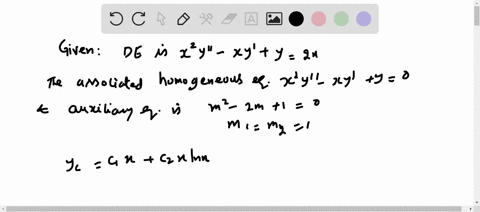 Given: DE is x²y'' - xy' + y = 2x
The associated homogeneous eq. x²y'' - xy' + y = 0
& auxiliary eq. is m² - 2m + 1 = 0
m₁ = m₂ = 1
y_c = c₁ x + c₂ x lnx